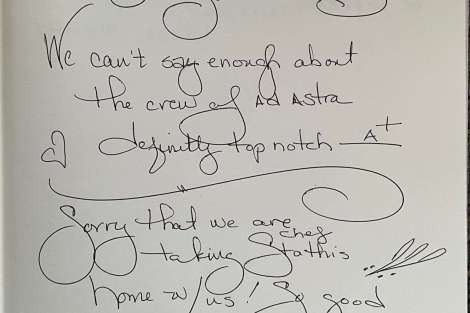 We can't say enough about
the crew of Ad Astra
definitly top notch A+
Sorry that we are
taking chef Stathis
home w/us! So good